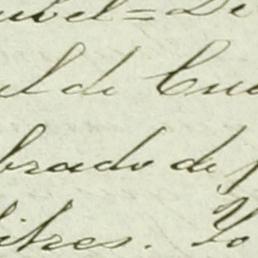 ubel= De
ul de Cu
brado de
litres. Yo